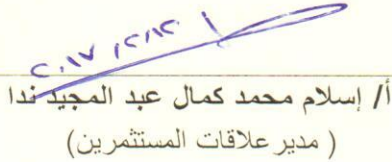 ٢٠١٧/١٢/١٢
أ/ إسلام محمد كمال عبد المجيد ندا
( مدير علاقات المستثمرين)